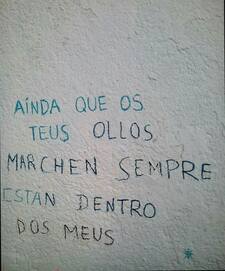 AINDA QUE OS
TEUS OLLOS
MARCHEN SEMPRE
ESTAN DENTRO
DOS MEUS